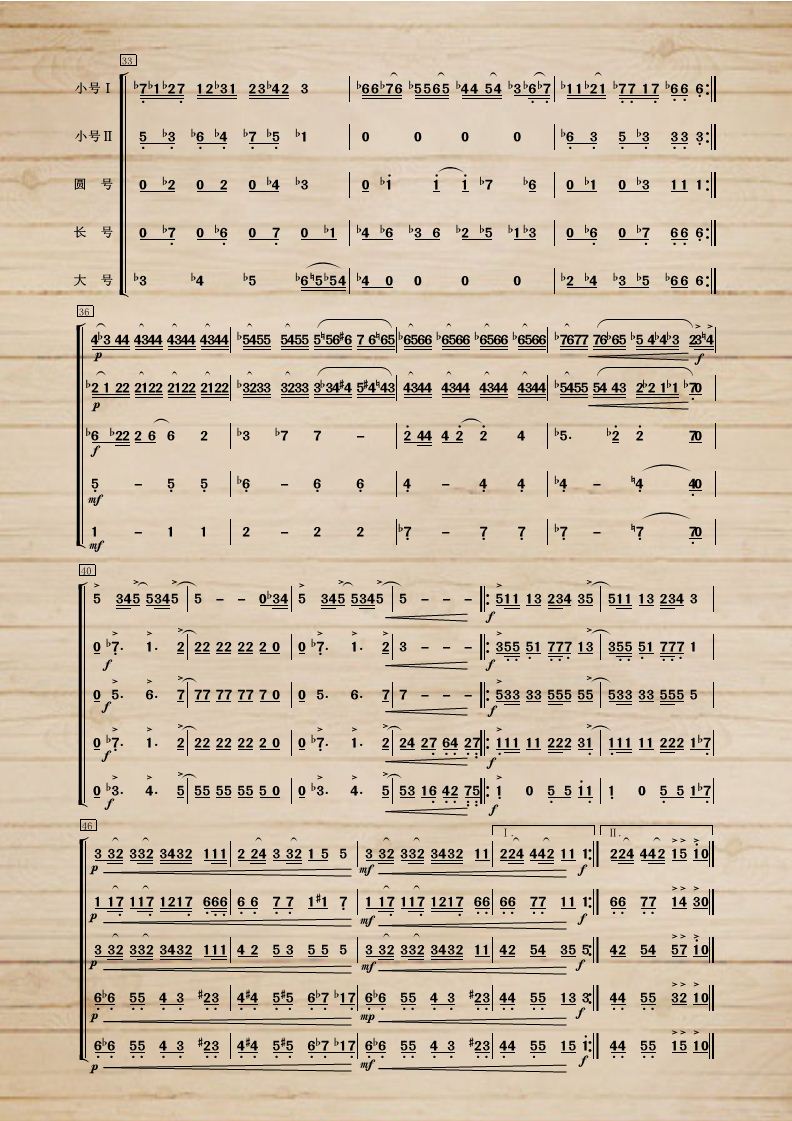 33
小号 I ♭7♭1♭27 12♭31 23♭42 3 | ♭66♭76 ♭5565 ♭44 54 ♭3♭6♭7 | ♭11♭21 ♭77 17 ♭66 6 :‖
小号 II 5 ♭3 ♭6 ♭4 ♭7 ♭5 ♭1 | 0 0 0 0 | ♭6 3 5 ♭3 33 3 :‖
圆 号 0 ♭2 0 2 0 ♭4 ♭3 | 0 ♭1 1 1 ♭7 ♭6 | 0 ♭1 0 ♭3 11 1 :‖
长 号 0 ♭7 0 ♭6 0 7 0 ♭1 | ♭4 ♭6 ♭3 6 ♭2 ♭5 ♭1♭3 | 0 ♭6 0 ♭7 66 6 :‖
大 号 ♭3 ♭4 ♭5 ♭6♮5♭54 | ♭4 0 0 0 0 | ♭2 ♭4 ♭3 ♭5 ♭66 6 :‖
36
4♭3 44 4344 4344 4344 | ♭5455 5455 5♮56♯6 7 6♮65 | ♭6566 ♭6566 ♭6566 ♭6566 | ♭7677 76♭65 ♭5 4♭4♭3 23♮4
p f
♭2 1 22 2122 2122 2122 | ♭3233 3233 3♭34♯4 5♯4♮43 | 4344 4344 4344 4344 | ♭5455 54 43 2♭2 1♭1 ♭70
p
♭6 ♭22 2 6 6 2 | ♭3 ♭7 7 – | 2 44 4 2 2 4 | ♭5. ♭2 2 70
f
5 – 5 5 | ♭6 – 6 6 | 4 – 4 4 | ♭4 – ♮4 40
mf
1 – 1 1 | 2 – 2 2 | ♭7 – 7 7 | ♭7 – ♮7 70
mf
40
5 345 5345 | 5 – – 0♭34 | 5 345 5345 | 5 – – – ‖: 511 13 234 35 | 511 13 234 3 |
f
0 ♭7. 1. 2 | 22 22 22 2 0 | 0 ♭7. 1. 2 | 3 – – – ‖: 355 51 777 13 | 355 51 777 1
f f
0 5. 6. 7 | 77 77 77 7 0 | 0 5. 6. 7 | 7 – – – ‖: 533 33 555 55 | 533 33 555 5
f f
0 ♭7. 1. 2 | 22 22 22 2 0 | 0 ♭7. 1. 2 | 24 27 64 27 ‖: 111 11 222 31 | 111 11 222 1♭7 |
f f
0 ♭3. 4. 5 | 55 55 55 5 0 | 0 ♭3. 4. 5 | 53 16 42 75 ‖: 1 0 5 5 11 | 1 0 5 5 1♭7 |
f f
46
I. II.
3 32 332 3432 111 | 2 24 3 32 1 5 5 | 3 32 332 3432 11 | 224 442 11 1 :‖ 224 442 15 10 ‖
p mf f
1 17 117 1217 666 | 6 6 7 7 1♯1 7 | 1 17 117 1217 66 | 66 77 11 1 :‖ 66 77 14 30 ‖
p mf f
3 32 332 3432 111 | 4 2 5 3 5 5 5 | 3 32 332 3432 11 | 42 54 35 5 :‖ 42 54 57 10 ‖
p mf f
6♭6 55 4 3 ♯23 | 4♯4 5♯5 6♭7 ♭17 | 6♭6 55 4 3 ♯23 | 44 55 13 3 :‖ 44 55 32 10 ‖
p mp f
6♭6 55 4 3 ♯23 | 4♯4 5♯5 6♭7 ♭17 | 6♭6 55 4 3 ♯23 | 44 55 15 1 :‖ 44 55 15 10 ‖
p mf f